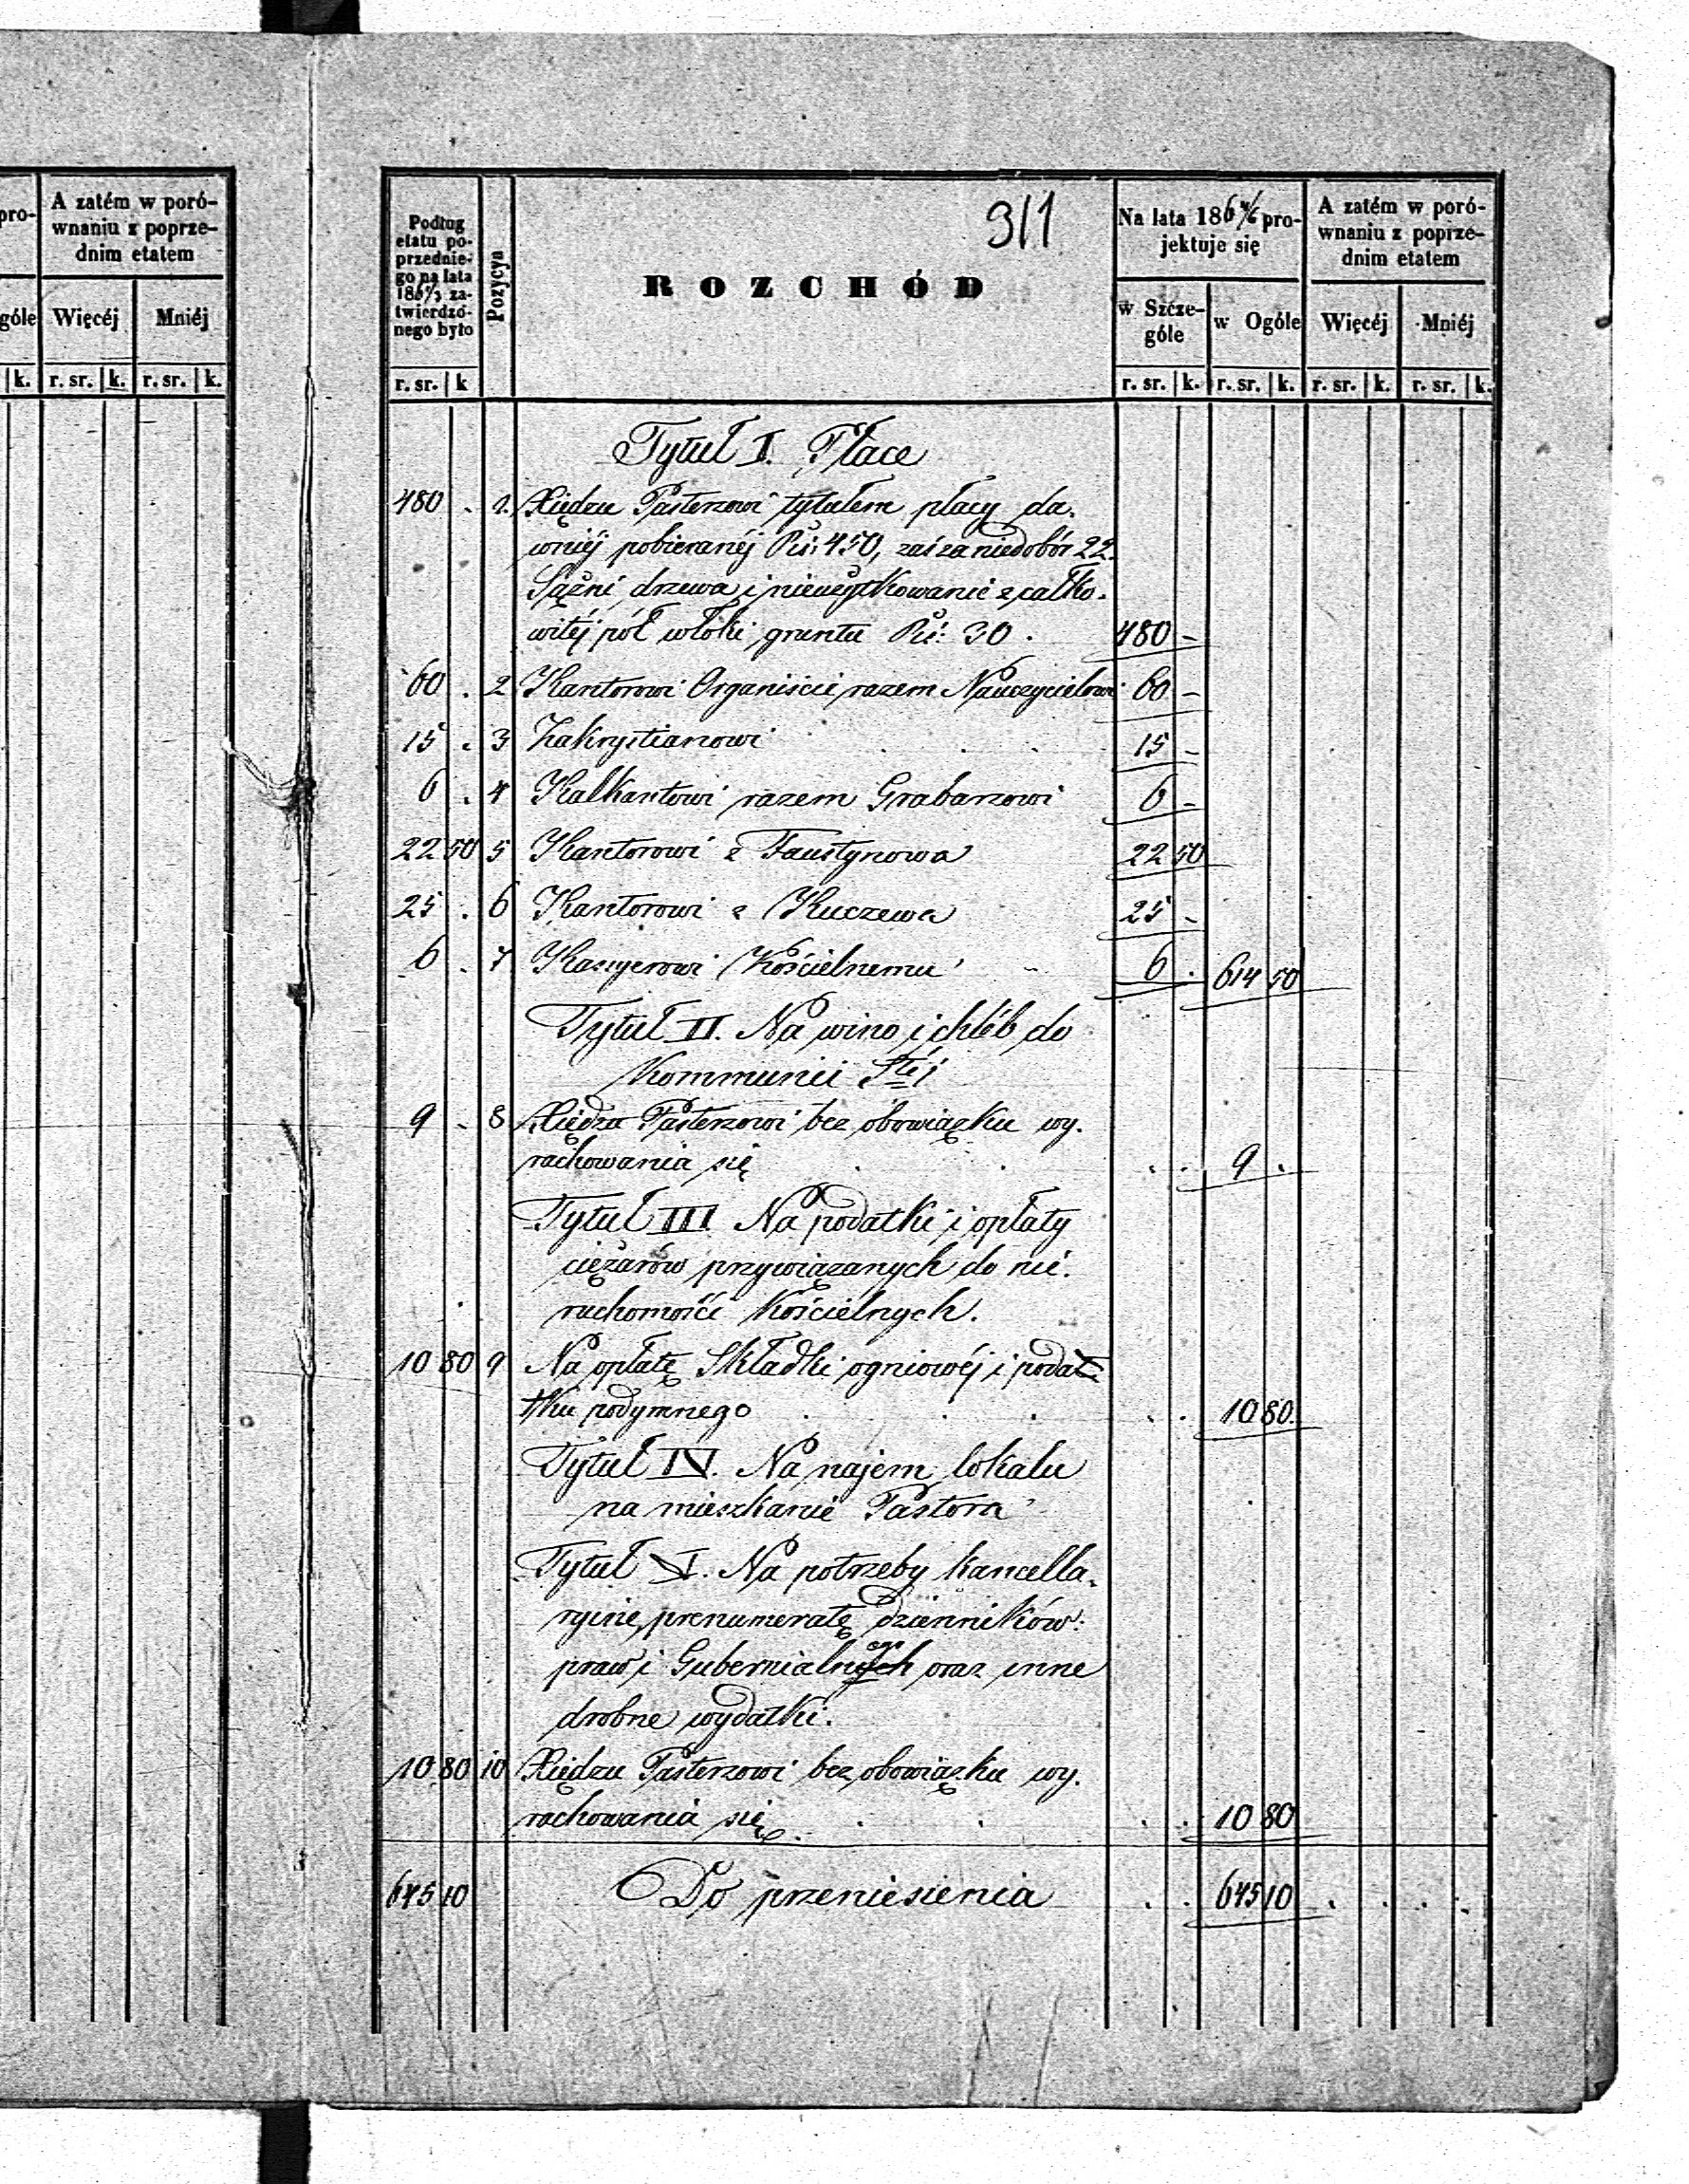 pro-
A zatém w poró-
wnaniu z poprze-
dnim etatem
góle Więcéj Mniéj
k. r. sr. k. r. sr. k.
311
Podług
etatu po-
przednie-
go na lata
186 za-
twierdzo-
nego było
Pozycya
ROZCHÓD
Na lata 186 pro-
jektuje się
A zatém w poró-
wnaniu z poprze-
dnim etatem
w Szcze-
góle
w Ogóle Więcéj Mniéj
r. sr. k r. sr. k. r. sr. k. r. sr. k. r. sr. k.
Tytuł I. Płace
480 . 1. Xiędzu Pasterzowi tytułem płacy da-
wniéj pobieranéj Rs: 450, zaś za niedobór 22.
Sążni drzewa i nieużytkowanie z całko-
witéj pół włoki gruntu Rs: 30 . 480 -
60 . 2 Kantorowi Organiście razem Nauczycielowi 60 -
15 . 3 Zakrystianowi . . . 15 -
6 . 4 Kalkantowi razem Grabarzowi 6 -
22 50 5 Kantorowi z Faustynowa 22 50
25 . 6 Kantorowi z Kuczewa 25 -
6 . 7 Kassyerowi Kościelnemu 6 . 614 50
Tytuł II. Na wino i chléb do
Kommunii Stéj
9 . 8 Xiędzu Pasterzowi bez obowiązku wy-
rachowania się . . . . 9 .
Tytuł III. Na podatki i opłaty
ciężarów przywiązanych do nie-
ruchomości Kościelnych.
10 80 9 Na opłatę Składki ogniowéj i podat-
tku podymnego . . . . . 10 80.
Tytuł IV. Na najem lokalu
na mieszkanie Pastora
Tytuł V. Na potrzeby kancella-
ryine, prenumeratę dzienników:
praw i Gubernialnych oraz inne
drobne wydatki.
10 80 10 Xiędzu Pasterzowi bez obowiązku wy-
rachowania się . . . . 10 80
645 10 Do przeniesienia . . 645 10 . . . .